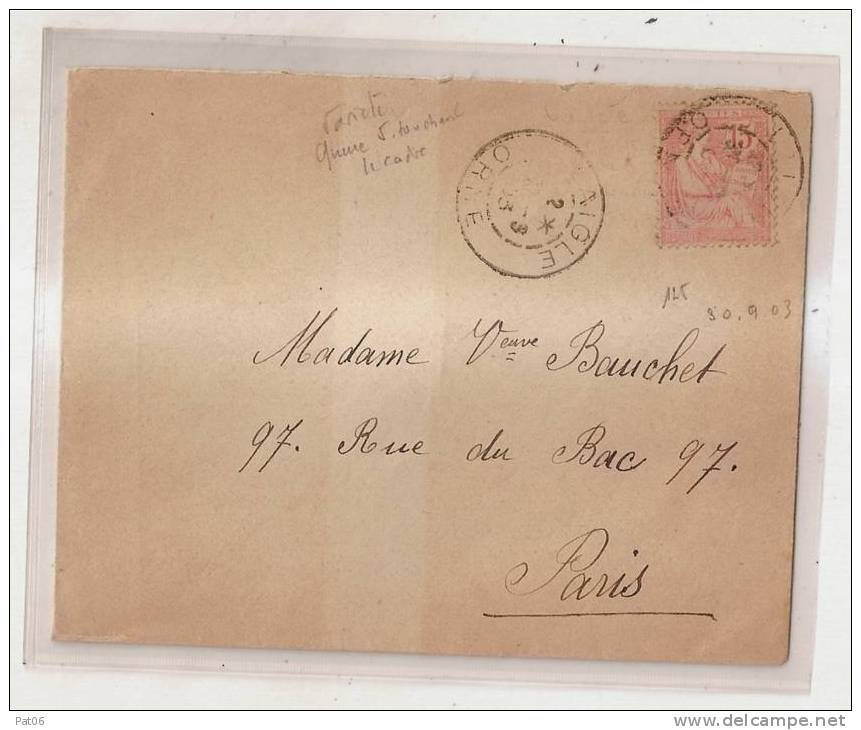 Variété
queue 5 touchant
le cadre
L'AIGLE
ORNE
15
125
30.9 03
Madame Veuve Bauchet
97. Rue du Bac 97.
Paris
Pat06
www.delcampe.net